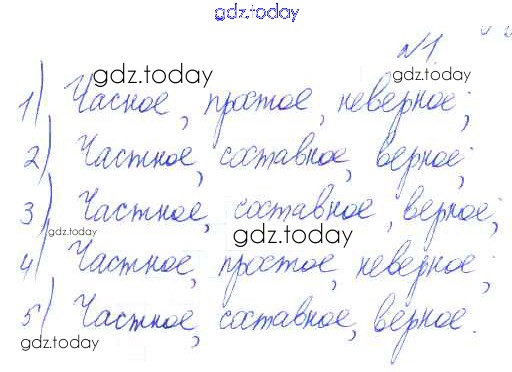 gdz.today
№1.
gdz.today
1) Часное, простое, неверное;
gdz.today
2) Частное, составное, верное;
3) Частное, составное, верное;
gdz.today
gdz.today
4) Частное, простое, неверное;
5) Частное, составное, верное.
gdz.today
gdz.today